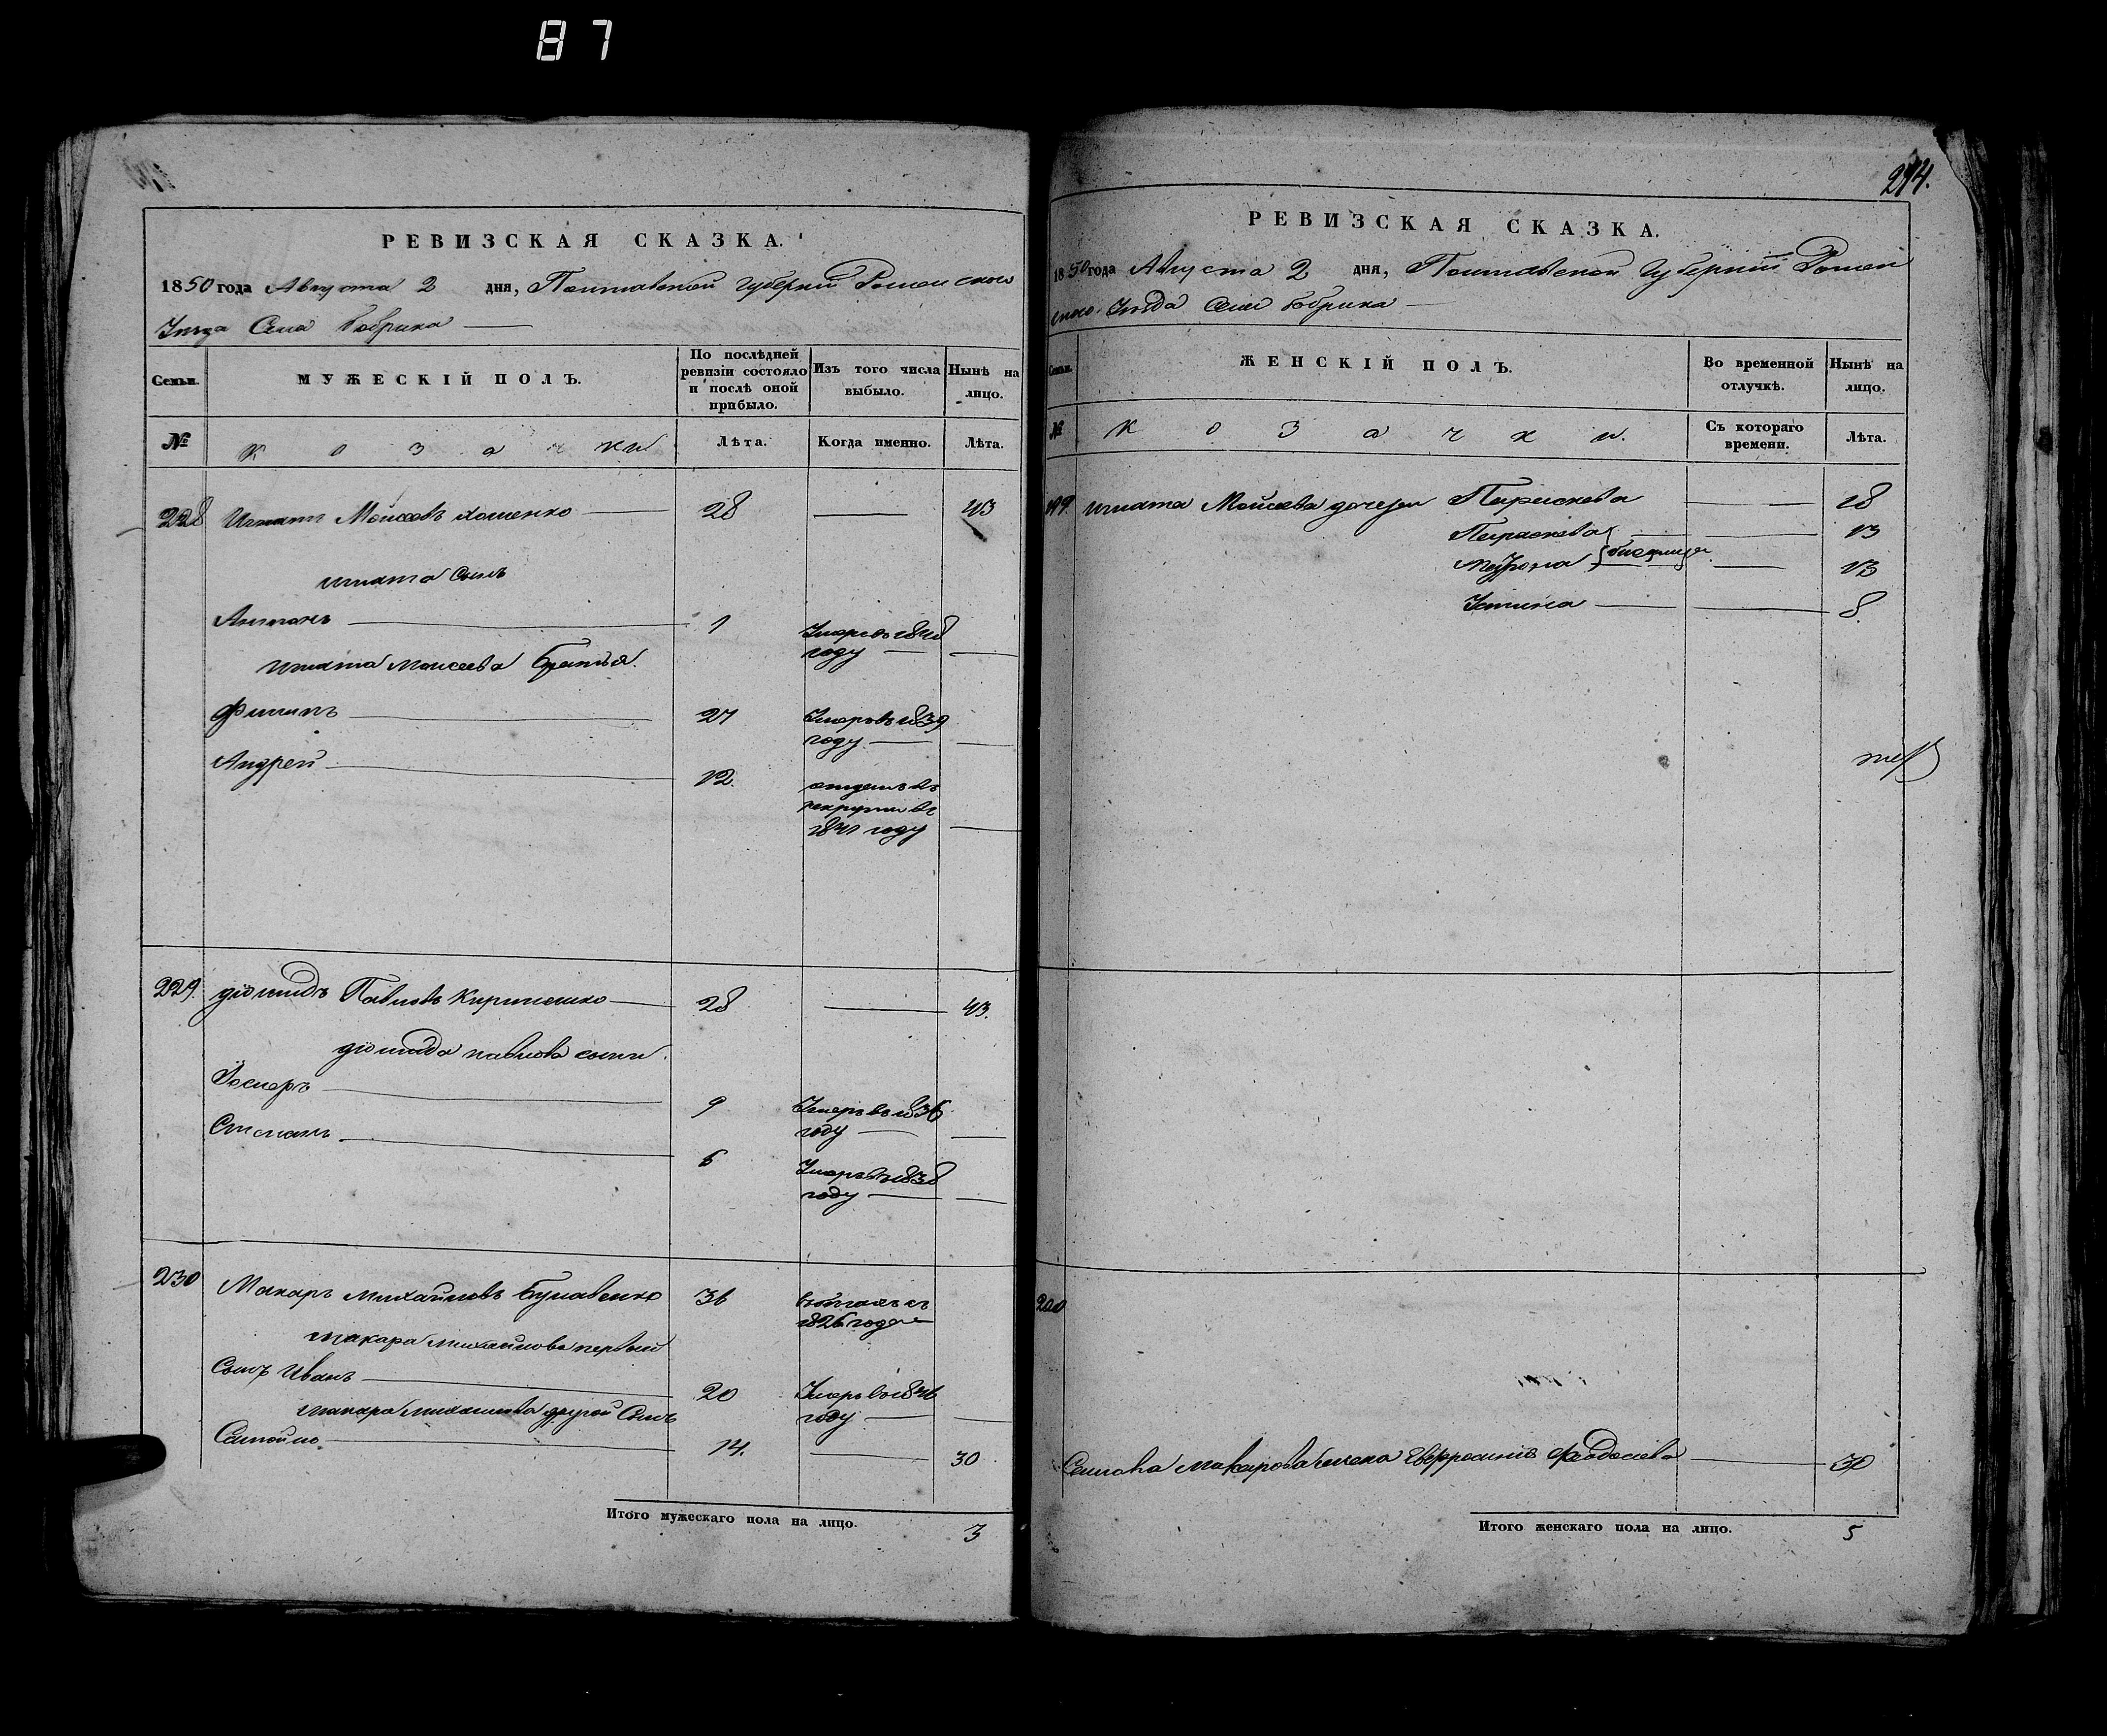 87
РЕВИЗСКАЯ СКАЗКА.
1850 года Августа 2 дня, Полтавской Губерніи Роменского
Уѣзда Села Бобрика
Семьи.
МУЖЕСКІЙ ПОЛЪ.
По послѣдней ревизіи состояло и послѣ оной прибыло.
Изъ того числа выбыло.
Нынѣ на лицо.
№
Лѣта.
Когда именно.
Лѣта.
228 Игнатъ Моисеевъ Хоменко 28 43
Игната Сынъ
Антонъ 1 Умеръ въ 1848
году
Игната Моисеева братья.
Филипъ 27 Умеръ въ 1839
году
Андрей 12. отданъ въ
рекруты въ
1841 году
229. Діомидъ Павловъ 28 43.
Діомида Павлова сыны.
9 Умеръ въ 1836
году
Степанъ 6 Умеръ въ 1838
году
230 Макаръ Михайловъ 36 въ бѣгахъ съ
1826 года
Макара Михайлова первый
Сынъ Иванъ 20 Умеръ въ 1846
году
Макара Михайлова другой Сынъ
Самойло 14. 30
Итого мужескаго пола на лицо. 3
274.
РЕВИЗСКАЯ СКАЗКА.
1850 года Августа 2 дня, Полтавской Губерніи Ромен
ского Уѣзда Села Бобрика
Семьи.
ЖЕНСКІЙ ПОЛЪ.
Во временной отлучкѣ.
Нынѣ на лицо.
№
К о з а ч к и.
Съ котораго времени.
Лѣта.
Игната Моисеева дочери Параскева 18
Параскева 13
близнецы
13
Устина 8.
Макарова жена Евфросинія Феодосіева 30
Итого женскаго пола на лицо. 5